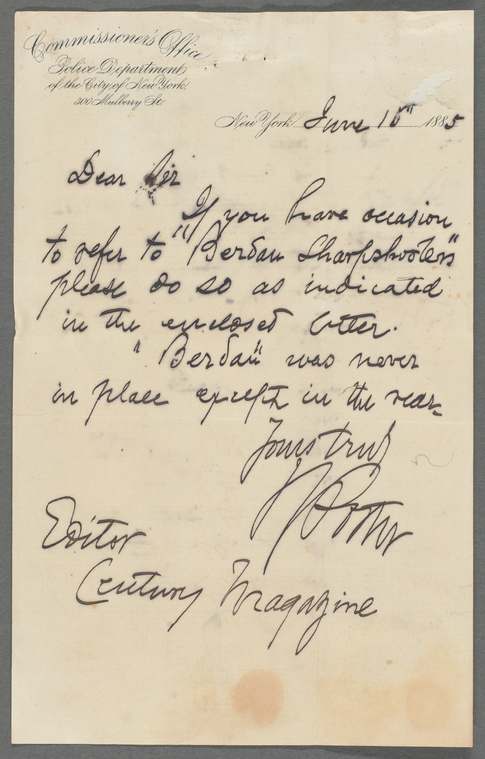 Commissioner's Office
Police Department
of the City of New York,
300 Mulberry St.
New York June 16" 1885
Dear Sir
If you have occasion
to refer to "Berdan Sharpshooters"
please do so as indicated
in the enclosed letter.
"Berdan" was never
in place except in the rear
Yours truly
Porter
Editor
Century Magazine